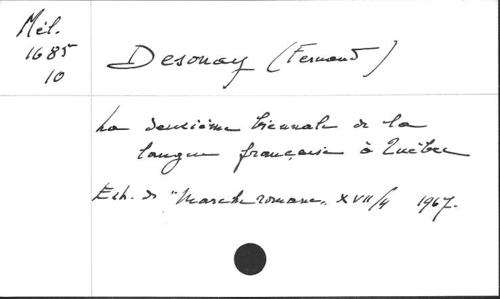 Mél.
1685
10
Desonay (Fernand)
La deuxième biennale de la
langue française à Québec
Extr. de "Marche romane", XVII/4 1967.